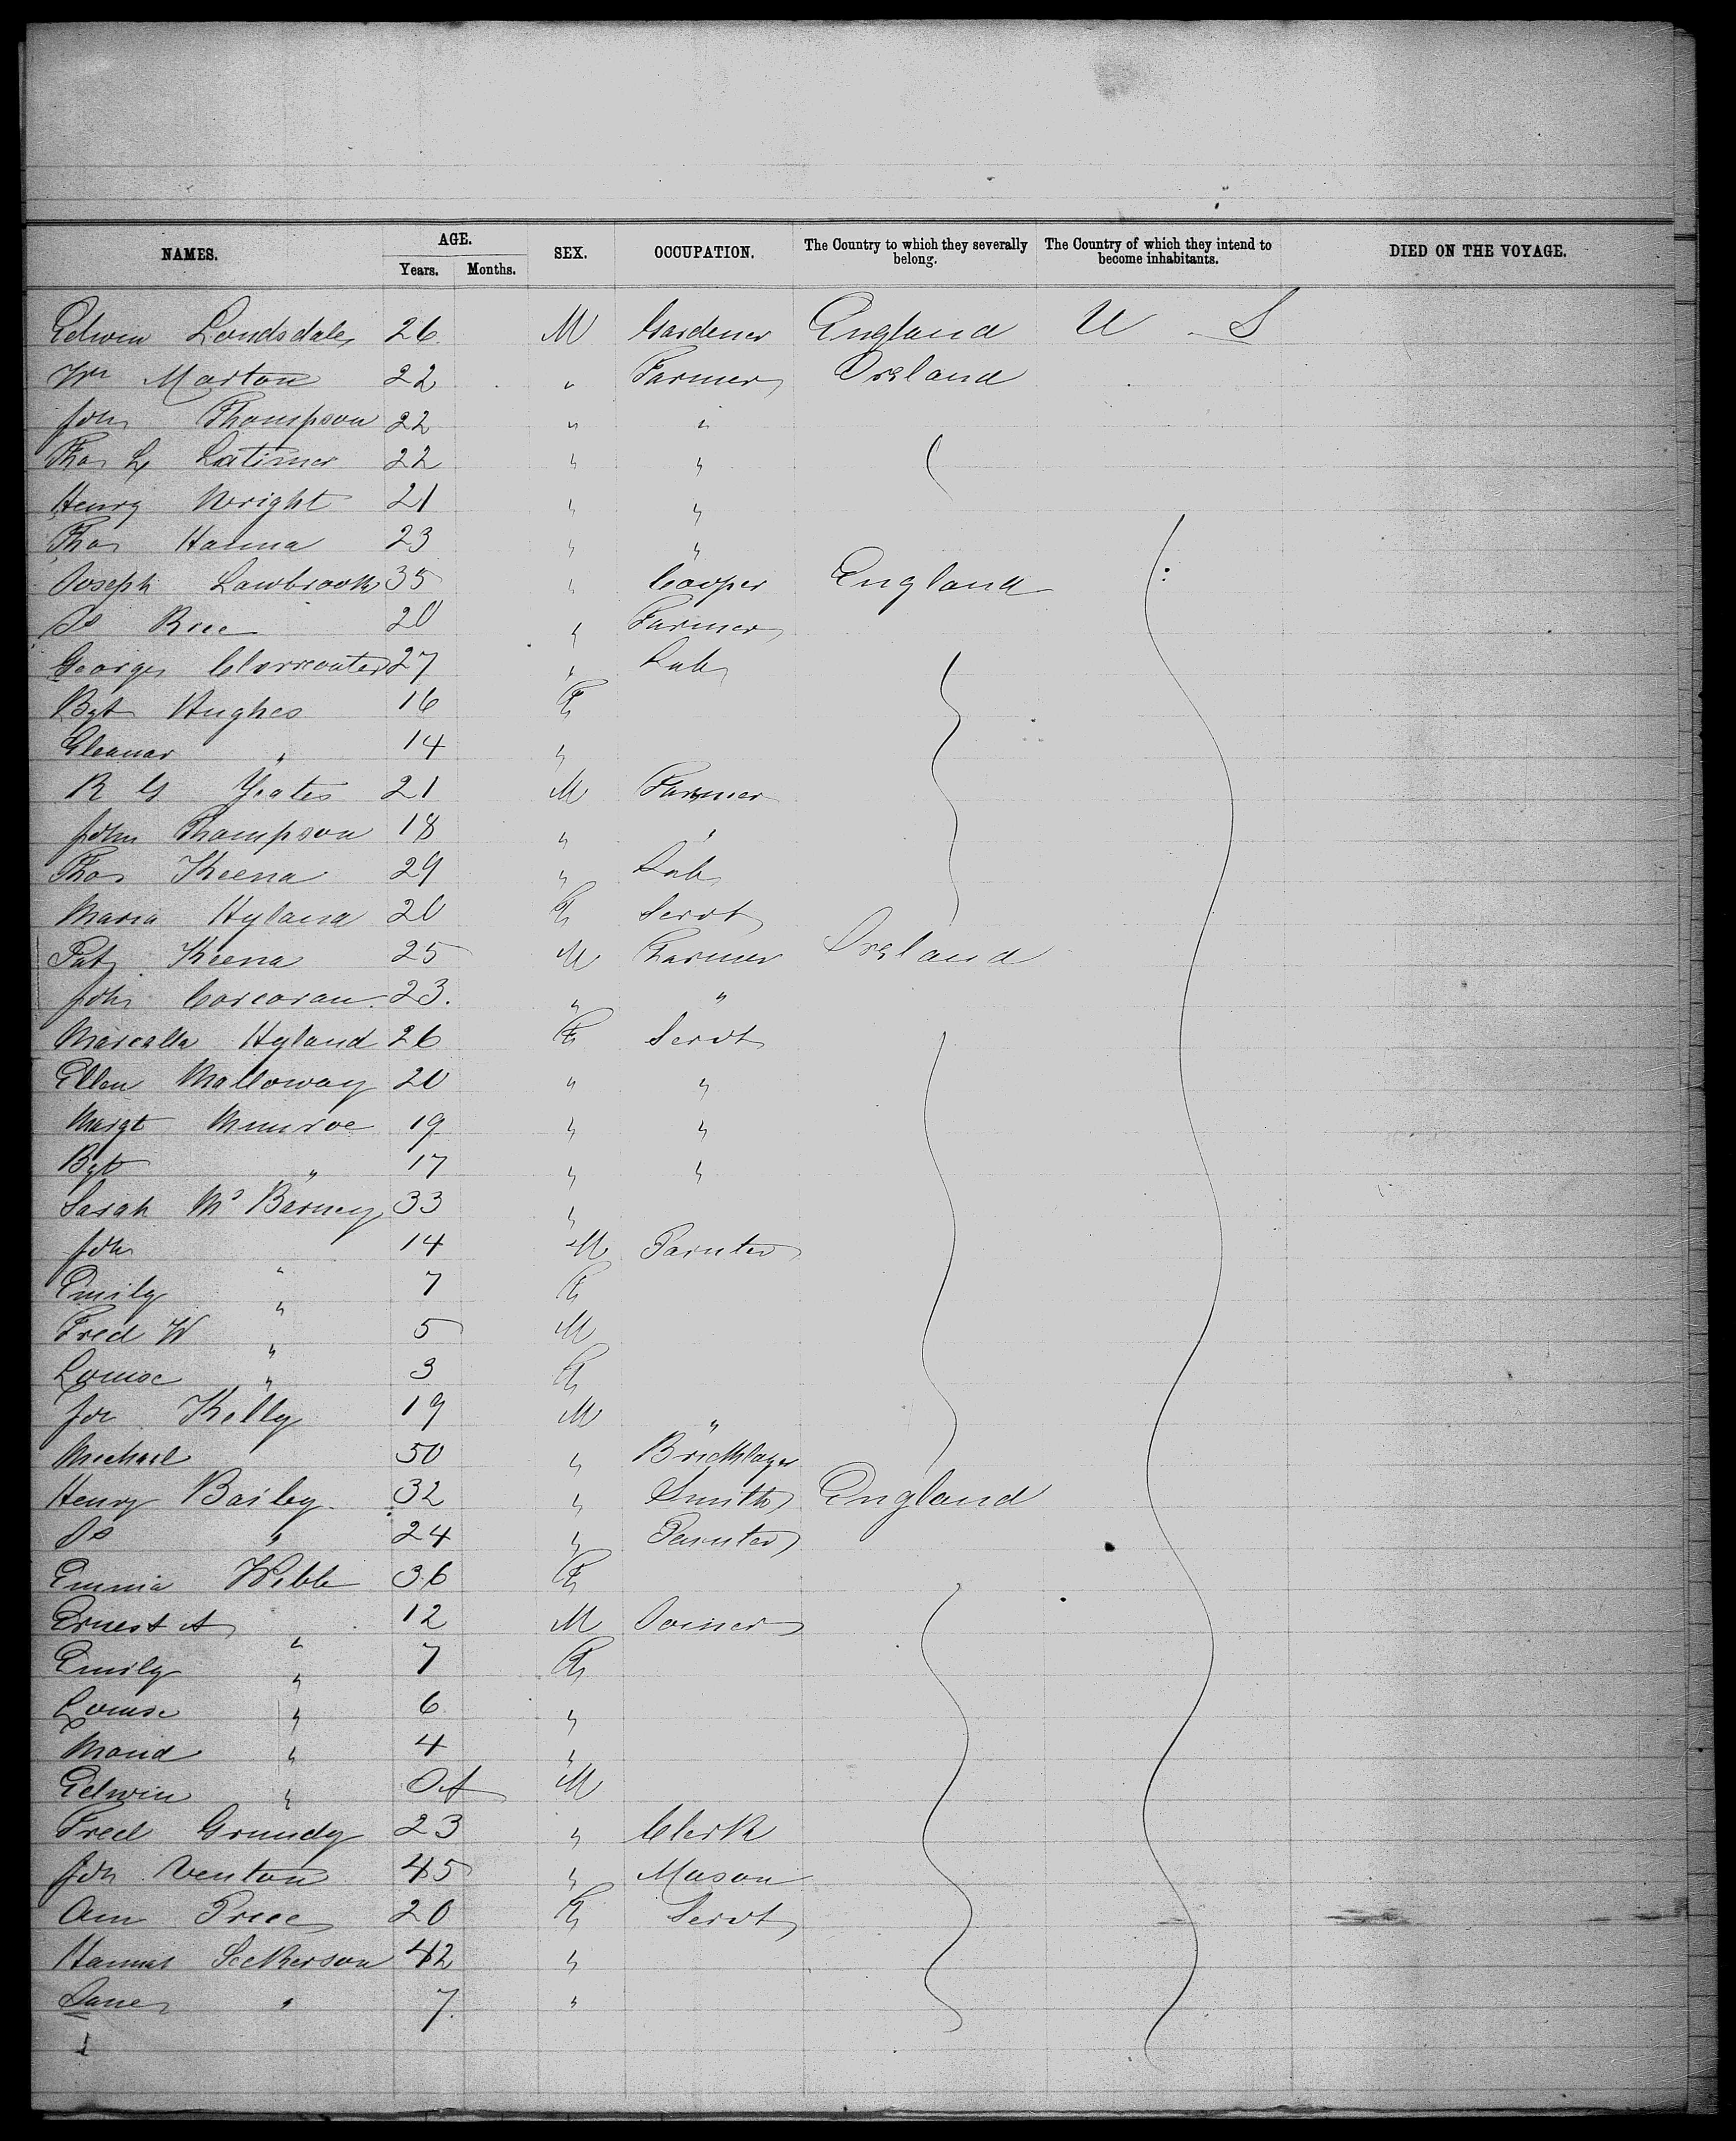 NAMES. AGE. SEX. OCCUPATION. The Country to which they severally belong. The Country of which they intend to become inhabitants. DIED ON THE VOYAGE.
Years. Months.
Edwin Londsdale 26 M Gardener England U S
Wm Morton 22 " Farmer Ireland
John Thompson 22 " "
Thos L Latimer 22 " "
Henry Wright 21 " "
Thos Hanna 23 " "
Joseph Lowbrook 35 " Cooper England
Js Rice 20 " Farmer
George 27 " Lab
Bgt Hughes 16 F
Eleanor " 14 "
R G Yeates 21 M Farmer
John Thompson 18 " "
Thos Keena 29 " Lab
Maria Hyland 20 F Servt
Pat Keena 25 M Farmer Ireland
John Corcoran 23. " "
Marcella Hyland 26 F Servt
Ellen Malloway 20 " "
Margt Munroe 19 " "
Bgt " 17 " "
Sarah Mc Barney 33 "
John " 14 M Painter
Emily " 7 F
Fred W " 5 M
Louise " 3 F
Jos Kelly 19 M "
Michael 50 " Bricklayer
Henry Bailey 32 " Smith England
Js " 24 " Painter
Emma Webb 36 F
Ernest A " 12 M Joiner
Emily " 7 F
Louise " 6 "
Maud " 4 "
Edwin " M
Fred Grundy 23 " Clerk
John Venton 45 " Mason
Ann Price 20 F Servt
Hannah Seckerson 42 "
Jane " 7. "